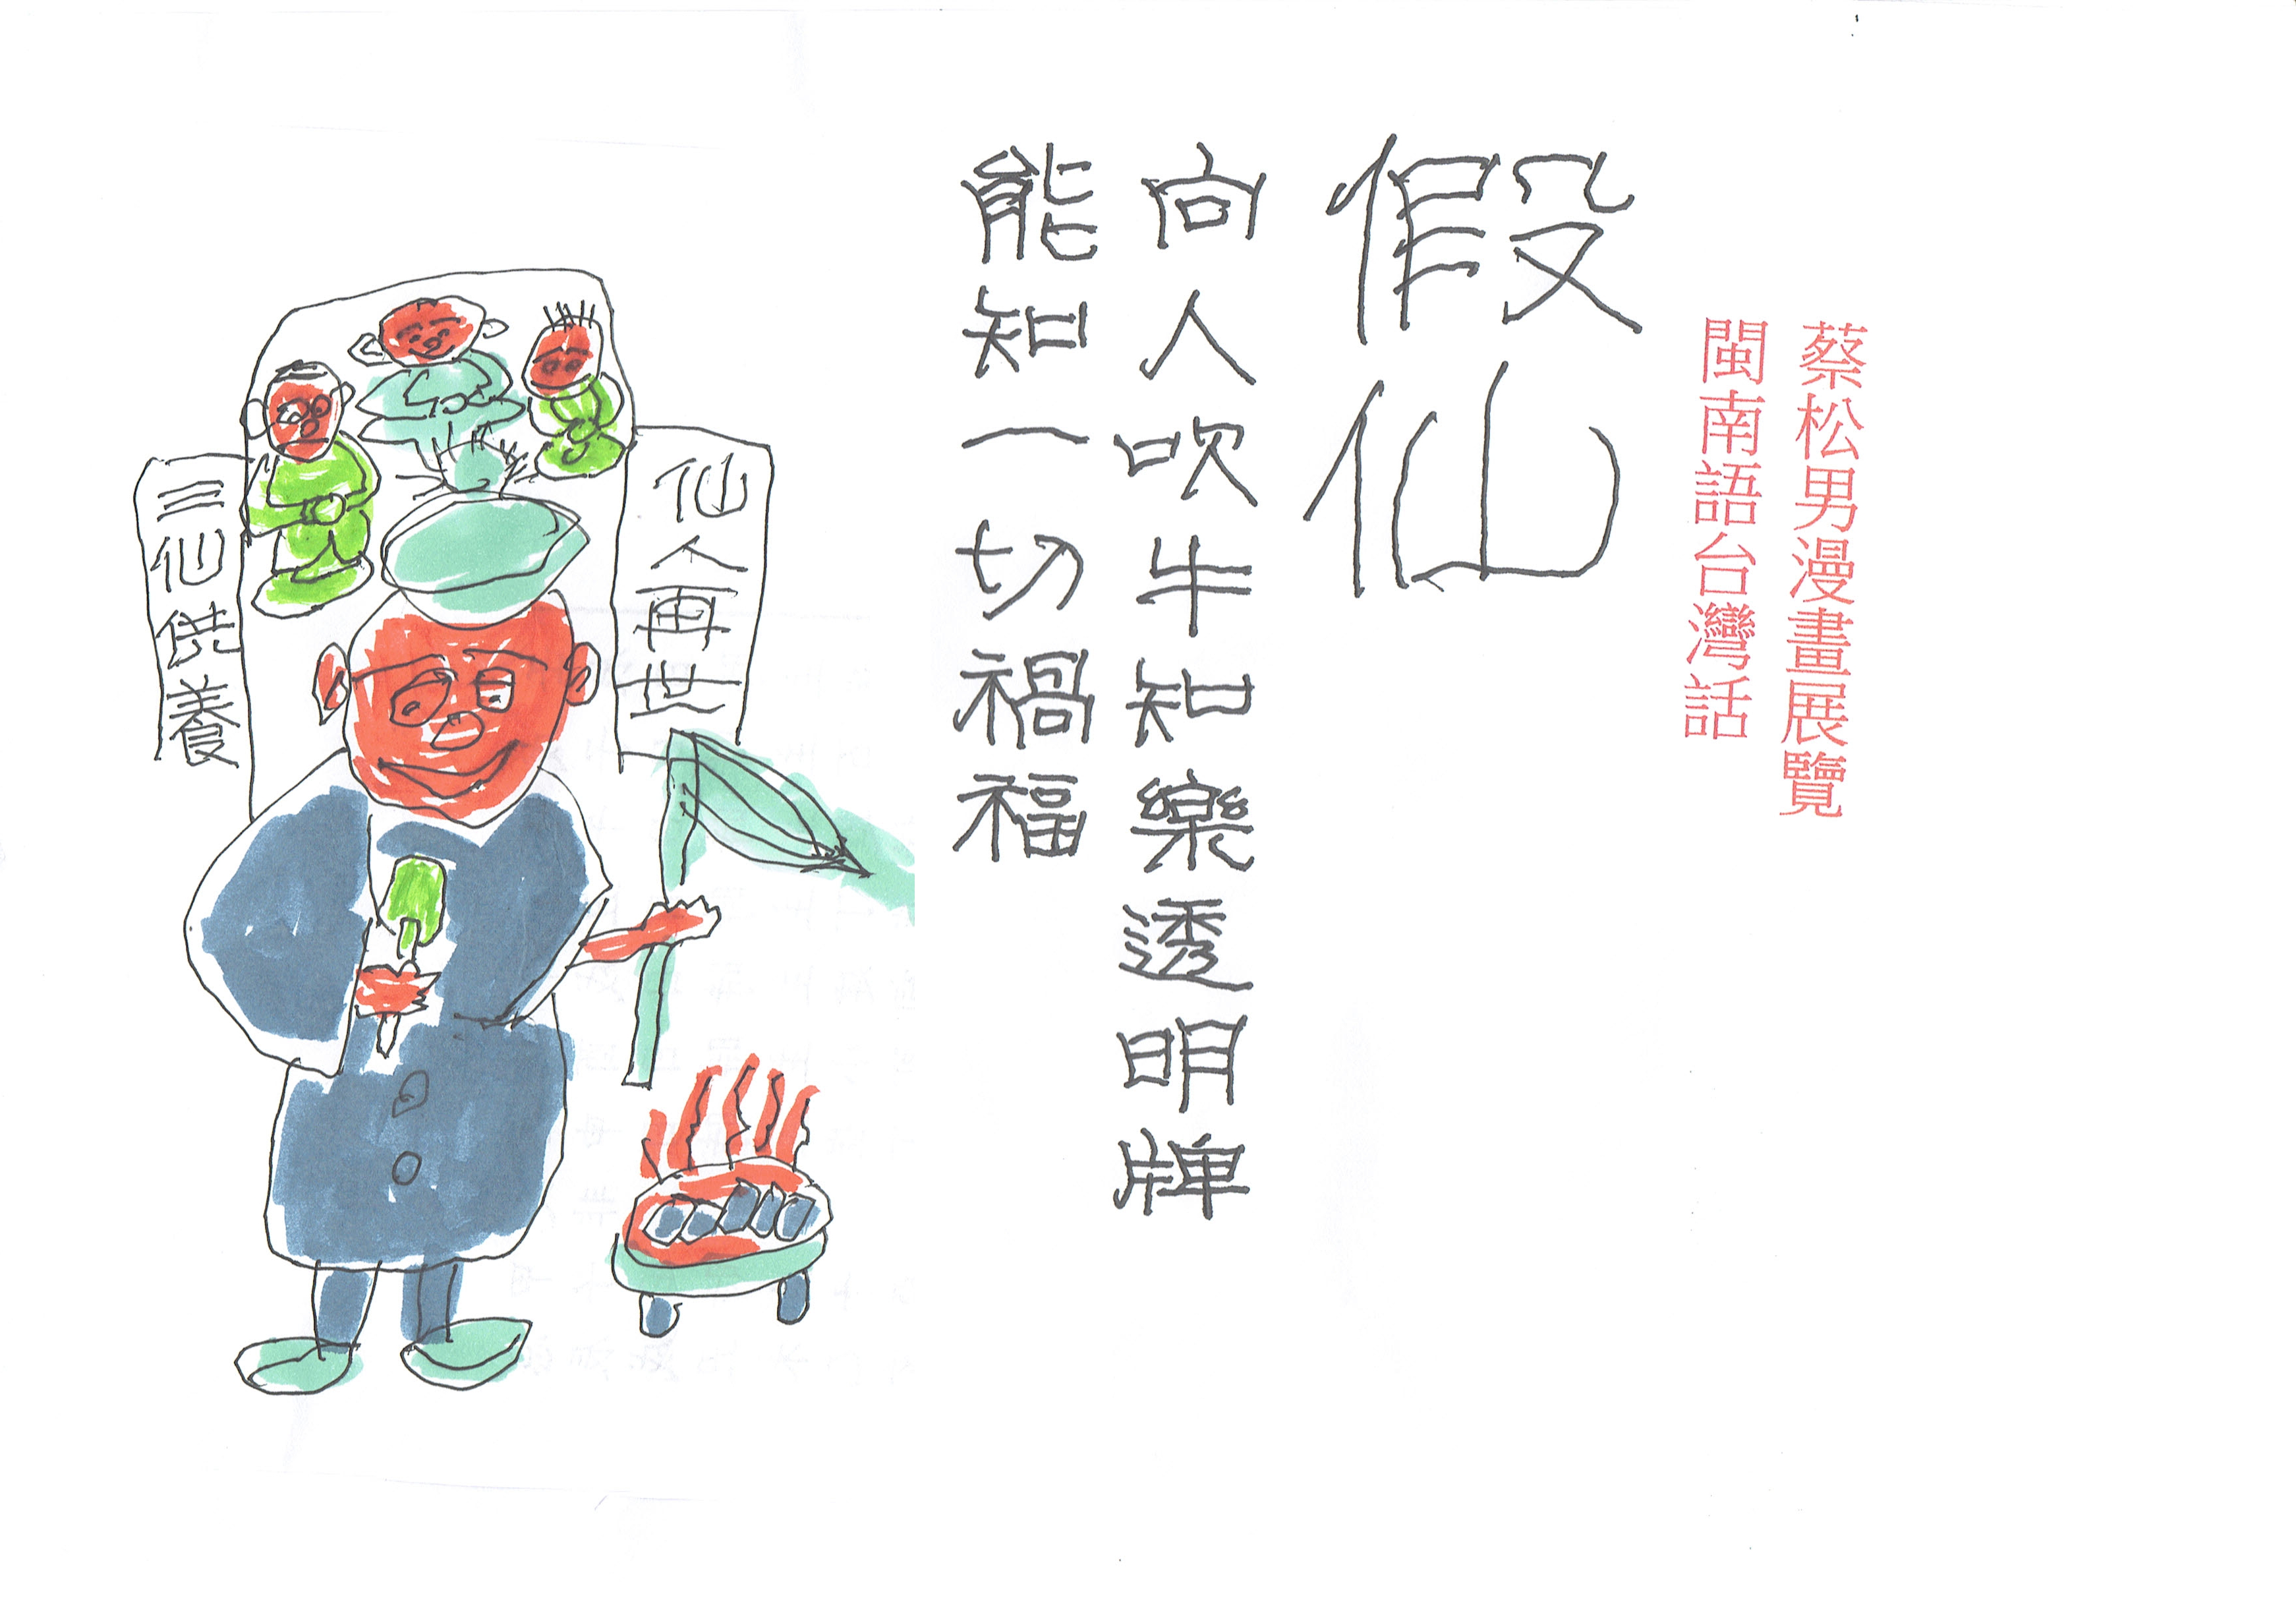 蔡松男漫畫展覽
閩南語台灣話
假仙
向人吹牛知樂透明牌
能知一切禍福
仙人再世
三仙供養